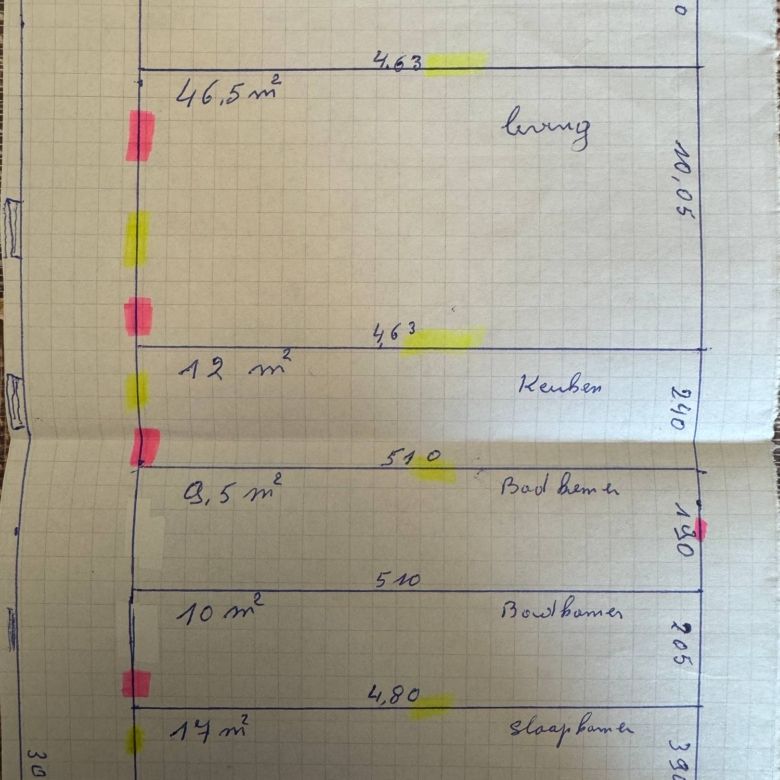 0
4.63
46,5 m²
living
10,05
4,63
12 m²
Keuken
240
510
9,5 m²
Badkamer
190
510
10 m²
Badkamer
205
4,80
17 m²
Slaapkamer
30